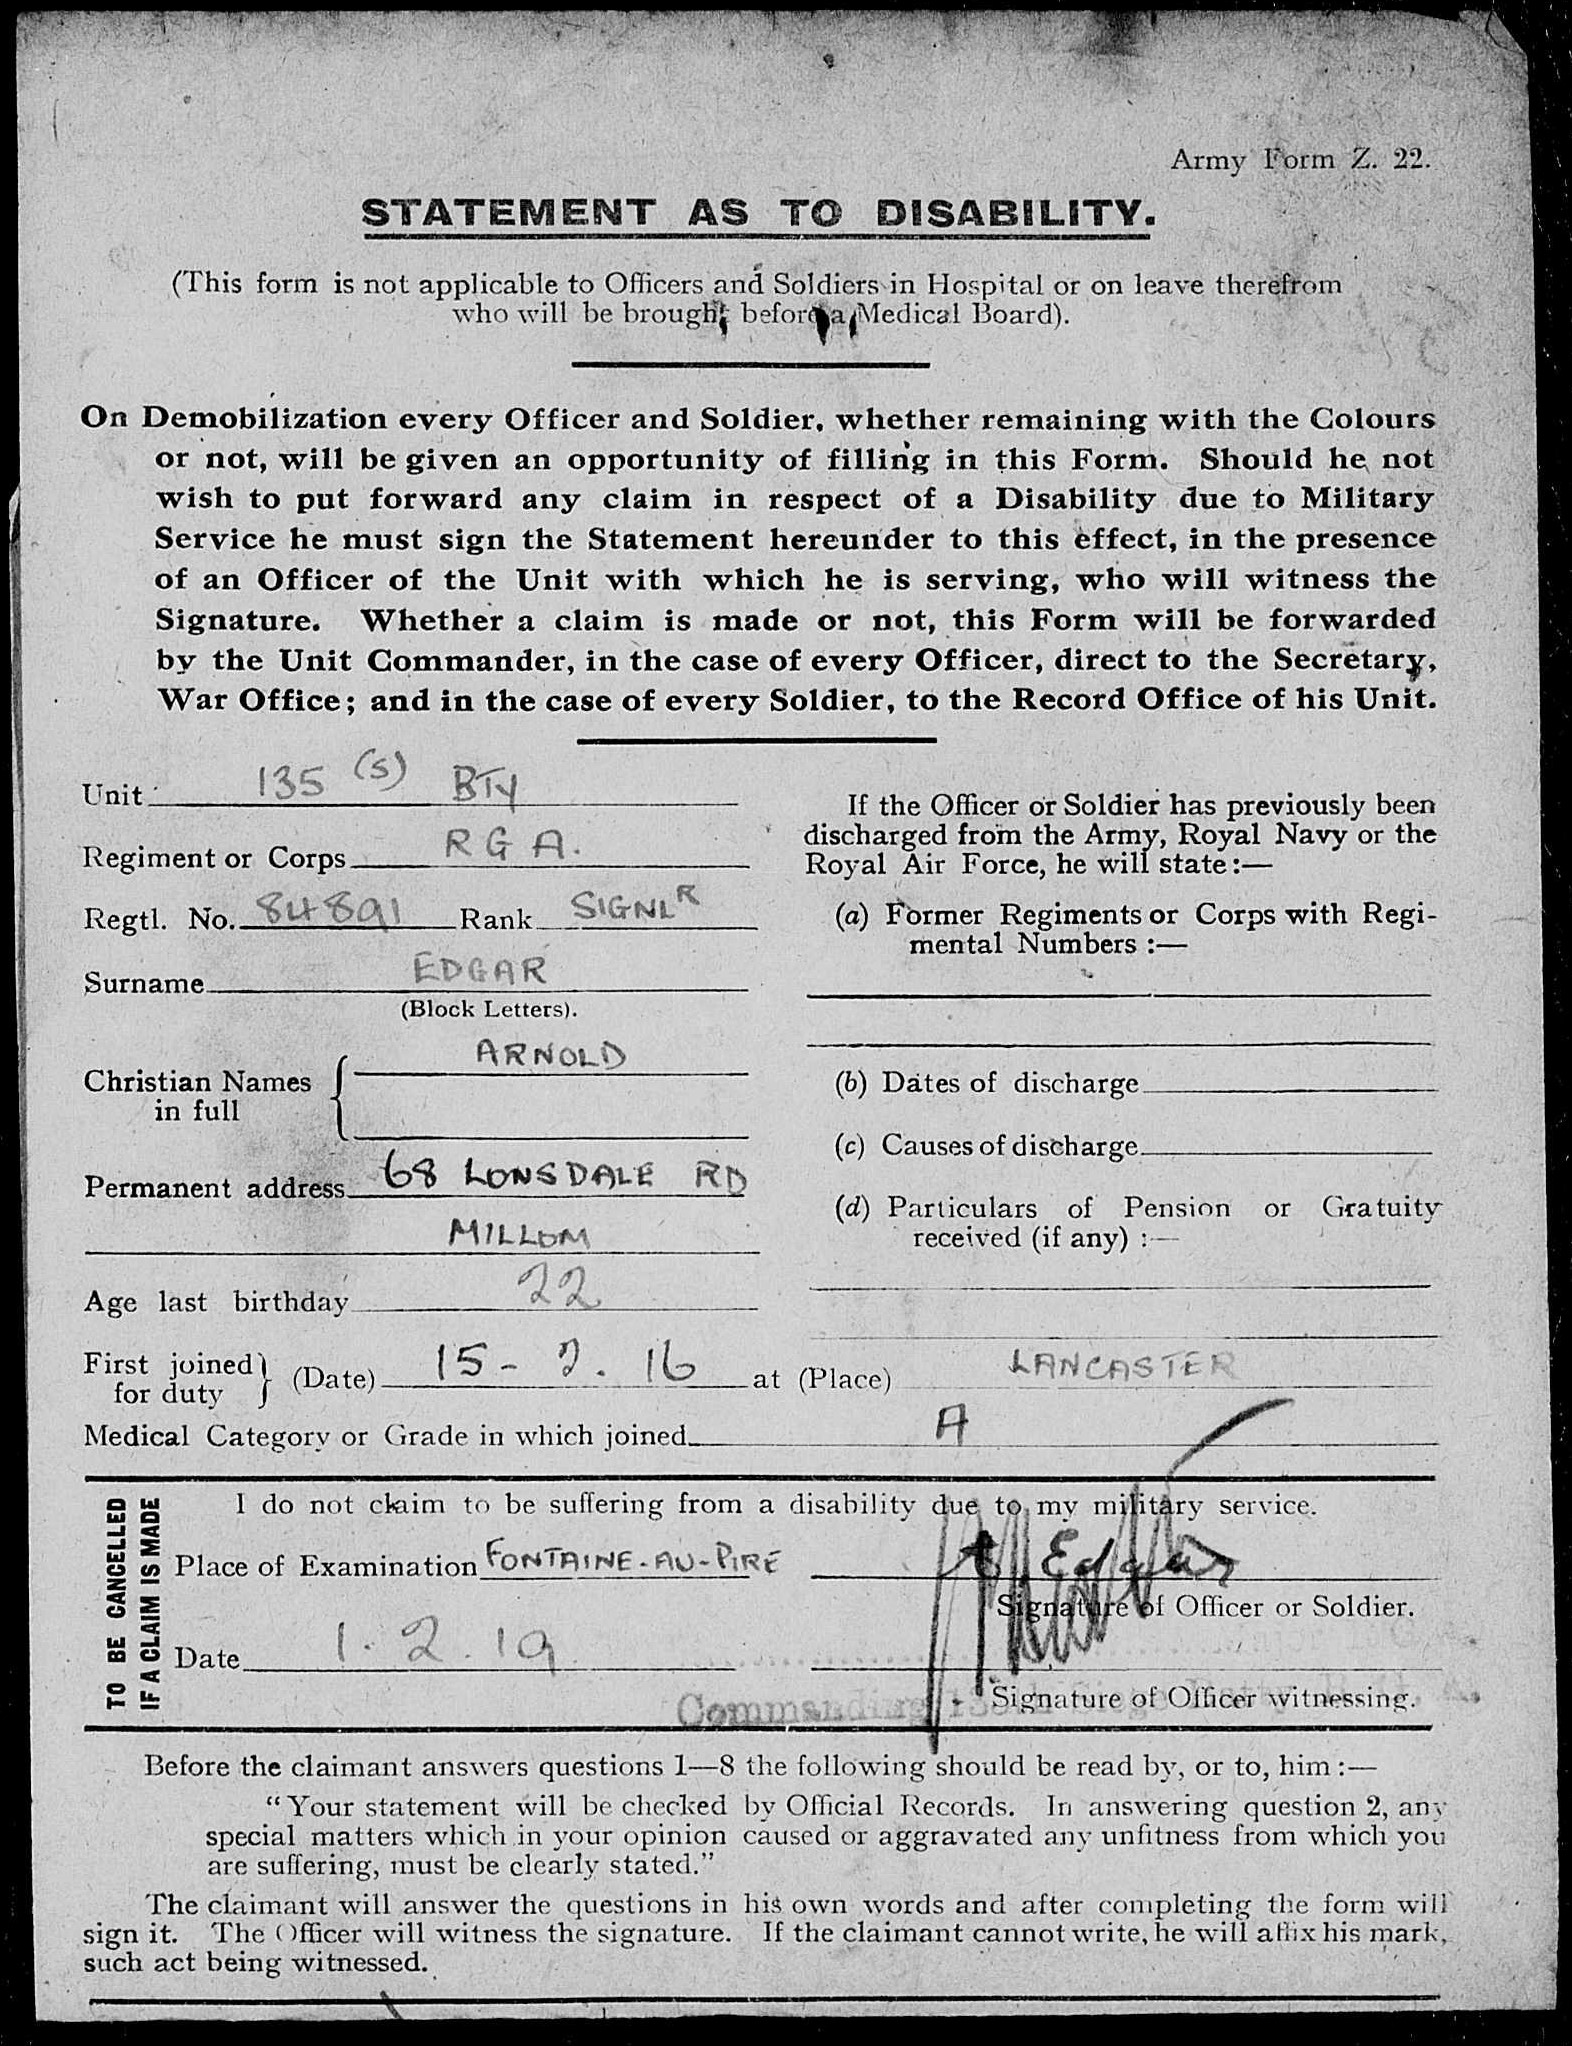 Army Form Z. 22.
STATEMENT AS TO DISABILITY.
(This form is not applicable to Officers and Soldiers in Hospital or on leave therefrom
who will be brought before a Medical Board).
On Demobilization every Officer and Soldier, whether remaining with the Colours
or not, will be given an opportunity of filling in this Form. Should he not
wish to put forward any claim in respect of a Disability due to Military
Service he must sign the Statement hereunder to this effect, in the presence
of an Officer of the Unit with which he is serving, who will witness the
Signature. Whether a claim is made or not, this Form will be forwarded
by the Unit Commander, in the case of every Officer, direct to the Secretary,
War Office; and in the case of every Soldier, to the Record Office of his Unit.
Unit 135 (S) BTY
Regiment or Corps R G A.
Regtl. No. 84891 Rank SIGNLR
Surname EDGAR
(Block Letters).
Christian Names
in full
ARNOLD
Permanent address 68 LONSDALE RD
MILLOM
Age last birthday 22
If the Officer or Soldier has previously been
discharged from the Army, Royal Navy or the
Royal Air Force, he will state:—
(a) Former Regiments or Corps with Regi-
mental Numbers :—
(b) Dates of discharge
(c) Causes of discharge
(d) Particulars of Pension or Gratuity
received (if any) :—
First joined
for duty
(Date) 15 - 2. 16 at (Place) LANCASTER
Medical Category or Grade in which joined A
TO BE CANCELLED
IF A CLAIM IS MADE
I do not claim to be suffering from a disability due to my military service.
Place of Examination FONTAINE-AU-PIRE
Edgar
Signature of Officer or Soldier.
Date 1. 2. 19
Signature of Officer witnessing.
Commanding Siege
Before the claimant answers questions 1—8 the following should be read by, or to, him :—
"Your statement will be checked by Official Records. In answering question 2, any
special matters which in your opinion caused or aggravated any unfitness from which you
are suffering, must be clearly stated."
The claimant will answer the questions in his own words and after completing the form will
sign it. The Officer will witness the signature. If the claimant cannot write, he will affix his mark,
such act being witnessed.